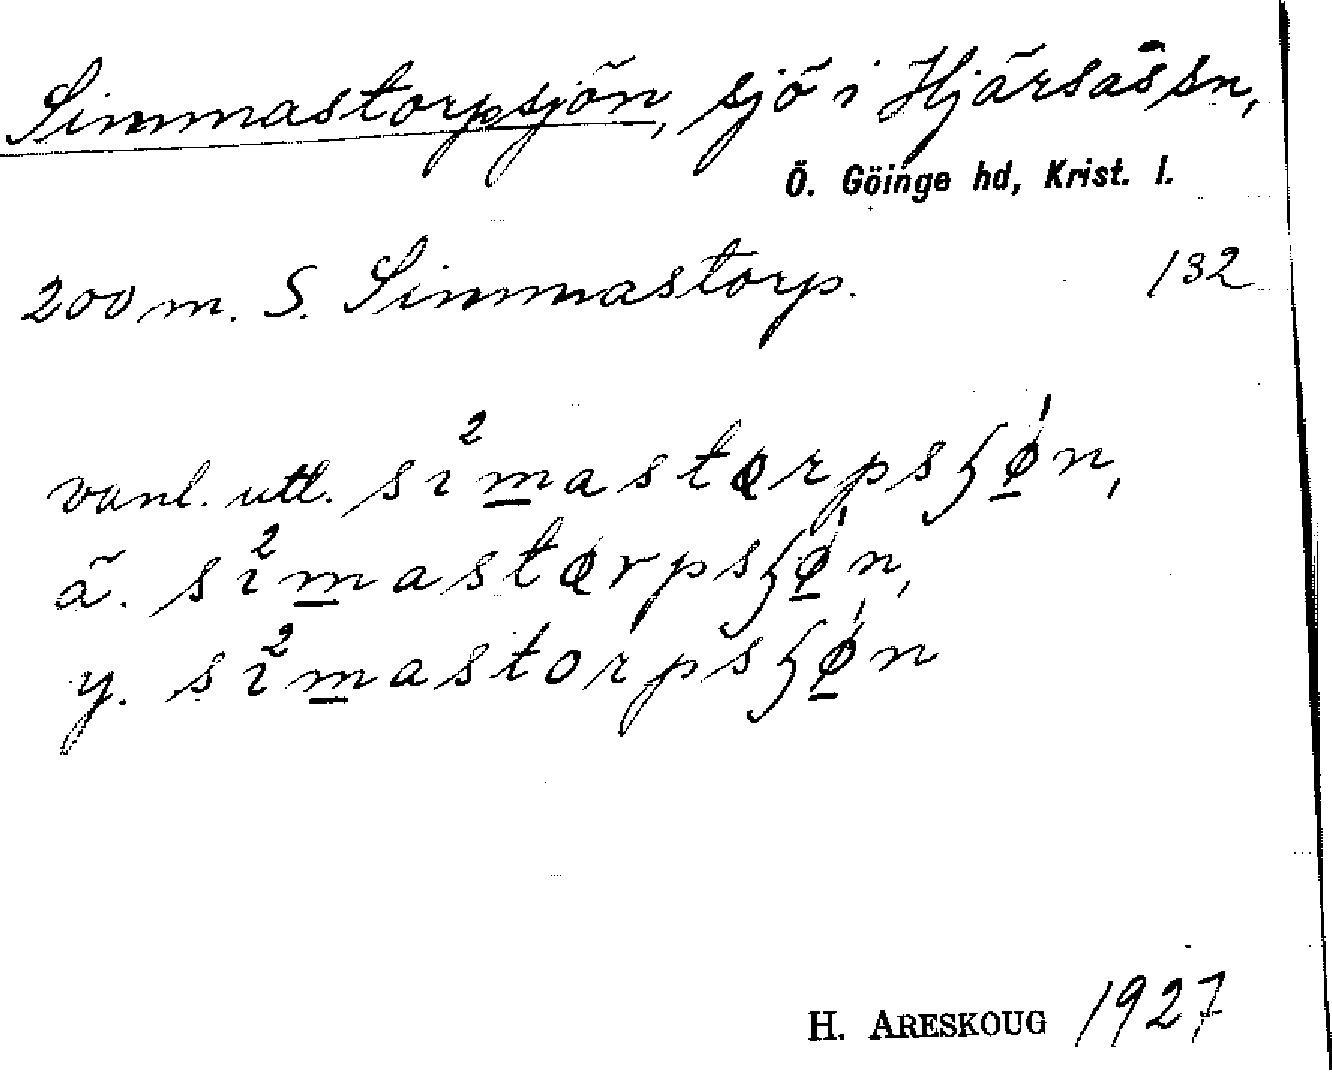 Simmastorpsjön, sjö i Hjärsås sn,
Ö. Göinge hd, Krist. l.
200 m. S. Simmastorp. 132
vanl. utt. sı²m̲astɑrpsʃǿ̲n,
ä. sı²m̲astɑrpsʃǿ̲n,
y. sı²m̲astorpsʃǿ̲n
H. ARESKOUG 1927